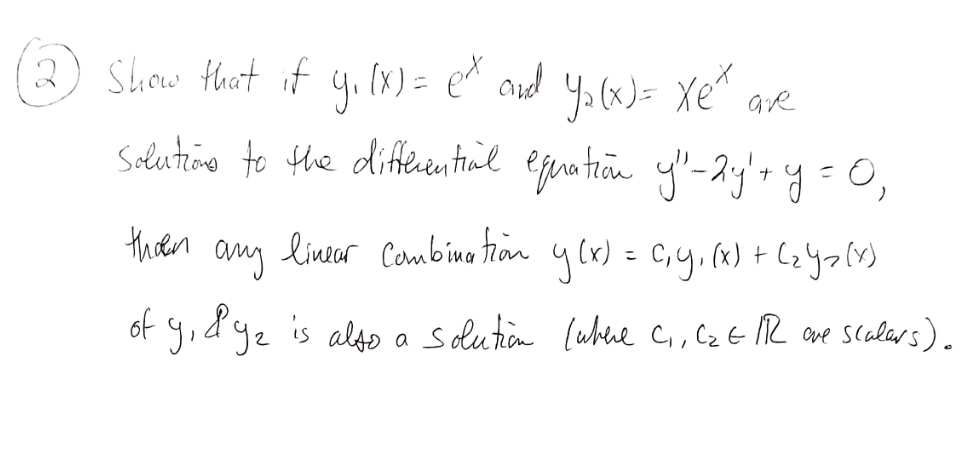 ② Show that if y₁(x) = eˣ and y₂(x) = xeˣ are
solutions to the differential equation y'' - 2y' + y = 0,
then any linear combination y(x) = c₁y₁(x) + c₂y₂(x)
of y₁ & y₂ is also a solution (where c₁, c₂ ∈ ℝ are scalars).